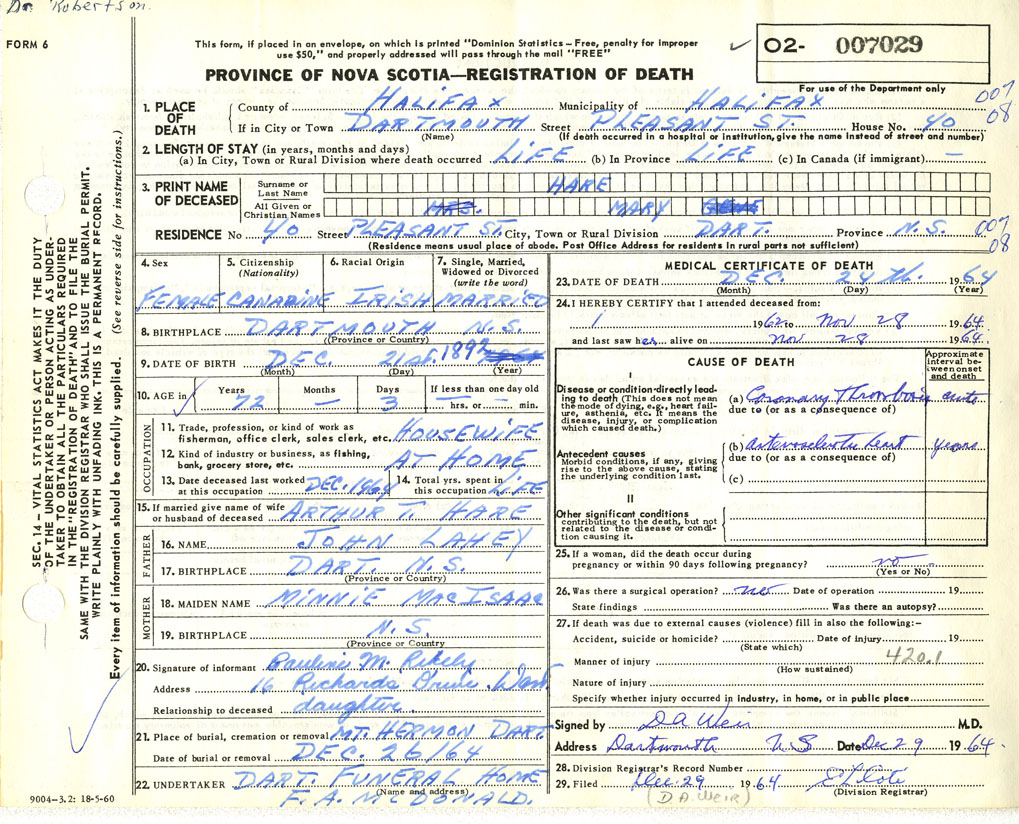 Dr. Robertson.
FORM 6
This form, if placed in an envelope, on which is printed "Dominion Statistics – Free, penalty for improper
use $50," and properly addressed will pass through the mail "FREE"
✓ O2- 007029
For use of the Department only
PROVINCE OF NOVA SCOTIA—REGISTRATION OF DEATH
007
08
1. PLACE OF DEATH
County of HALIFAX Municipality of HALIFAX
If in City or Town DARTMOUTH Street PLEASANT ST. House No. 40
(Name) (If death occurred in a hospital or institution, give the name instead of street and number)
2. LENGTH OF STAY (in years, months and days)
(a) In City, Town or Rural Division where death occurred LIFE (b) In Province LIFE (c) In Canada (if immigrant) —
3. PRINT NAME OF DECEASED
Surname or Last Name HARE
All Given or Christian Names MRS. MARY
RESIDENCE No 40 Street PLEASANT ST. City, Town or Rural Division DART. Province N.S.
007
08
(Residence means usual place of abode. Post Office Address for residents in rural parts not sufficient)
4. Sex 5. Citizenship (Nationality) 6. Racial Origin 7. Single, Married, Widowed or Divorced (write the word)
FEMALE CANADINE IRISH MARRIED
8. BIRTHPLACE DARTMOUTH N.S.
(Province or Country)
9. DATE OF BIRTH DEC. 21st 1892
(Month) (Day) (Year)
10. AGE in Years Months Days If less than one day old
72 — 3 hrs. or — min.
OCCUPATION
11. Trade, profession, or kind of work as fisherman, office clerk, sales clerk, etc. HOUSEWIFE
12. Kind of industry or business, as fishing, bank, grocery store, etc. AT HOME
13. Date deceased last worked at this occupation DEC. 1964 14. Total yrs. spent in this occupation LIFE
15. If married give name of wife or husband of deceased ARTHUR T. HARE
FATHER
16. NAME JOHN LAHEY
17. BIRTHPLACE DART. N.S.
(Province or Country)
MOTHER
18. MAIDEN NAME MINNIE MACISAAC
19. BIRTHPLACE N.S.
(Province or Country
20. Signature of informant Pauline M.
Address 16 Drive
Relationship to deceased daughter
21. Place of burial, cremation or removal MT. HERMON DART.
Date of burial or removal DEC. 26/64
22. UNDERTAKER DART. FUNERAL HOME
(Name and address)
F. A. MCDONALD.
MEDICAL CERTIFICATE OF DEATH
23. DATE OF DEATH DEC. 24th. 1964
(Month) (Day) (Year)
24. I HEREBY CERTIFY that I attended deceased from:
1 1962 to Nov 28 1964
and last saw her alive on Nov 28 1964.
CAUSE OF DEATH
Approximate interval between onset and death
I
Disease or condition directly leading to death (This does not mean the mode of dying, e.g., heart failure, asthenia, etc. It means the disease, injury, or complication which caused death.)
(a) Coronary Thrombosis acute
due to (or as a consequence of)
Antecedent causes
Morbid conditions, if any, giving rise to the above cause, stating the underlying condition last.
(b) arteriosclerotic heart years
due to (or as a consequence of)
(c)
II
Other significant conditions
contributing to the death, but not related to the disease or condition causing it.
25. If a woman, did the death occur during
pregnancy or within 90 days following pregnancy? no
(Yes or No)
26. Was there a surgical operation? no Date of operation 19
State findings Was there an autopsy?
27. If death was due to external causes (violence) fill in also the following:–
Accident, suicide or homicide? Date of injury 19
(State which)
Manner of injury 420.1
(How sustained)
Nature of injury
Specify whether injury occurred in industry, in home, or in public place
Signed by D A Weir M.D.
Address Dartmouth NS Date Dec 29 1964.
28. Division Registrar's Record Number
29. Filed Dec. 29 1964
(Division Registrar)
(D A. WEIR)
SEC. 14 – VITAL STATISTICS ACT MAKES IT THE DUTY
OF THE UNDERTAKER OR PERSON ACTING AS UNDER-
TAKER TO OBTAIN ALL THE PARTICULARS REQUIRED
IN THE "REGISTRATION OF DEATH" AND TO FILE THE
SAME WITH THE DIVISION REGISTRAR WHO SHALL ISSUE THE BURIAL PERMIT.
WRITE PLAINLY WITH UNFADING INK. THIS IS A PERMANENT RECORD.
Every item of information should be carefully supplied. (See reverse side for instructions.)
9004–3.2: 18-5-60